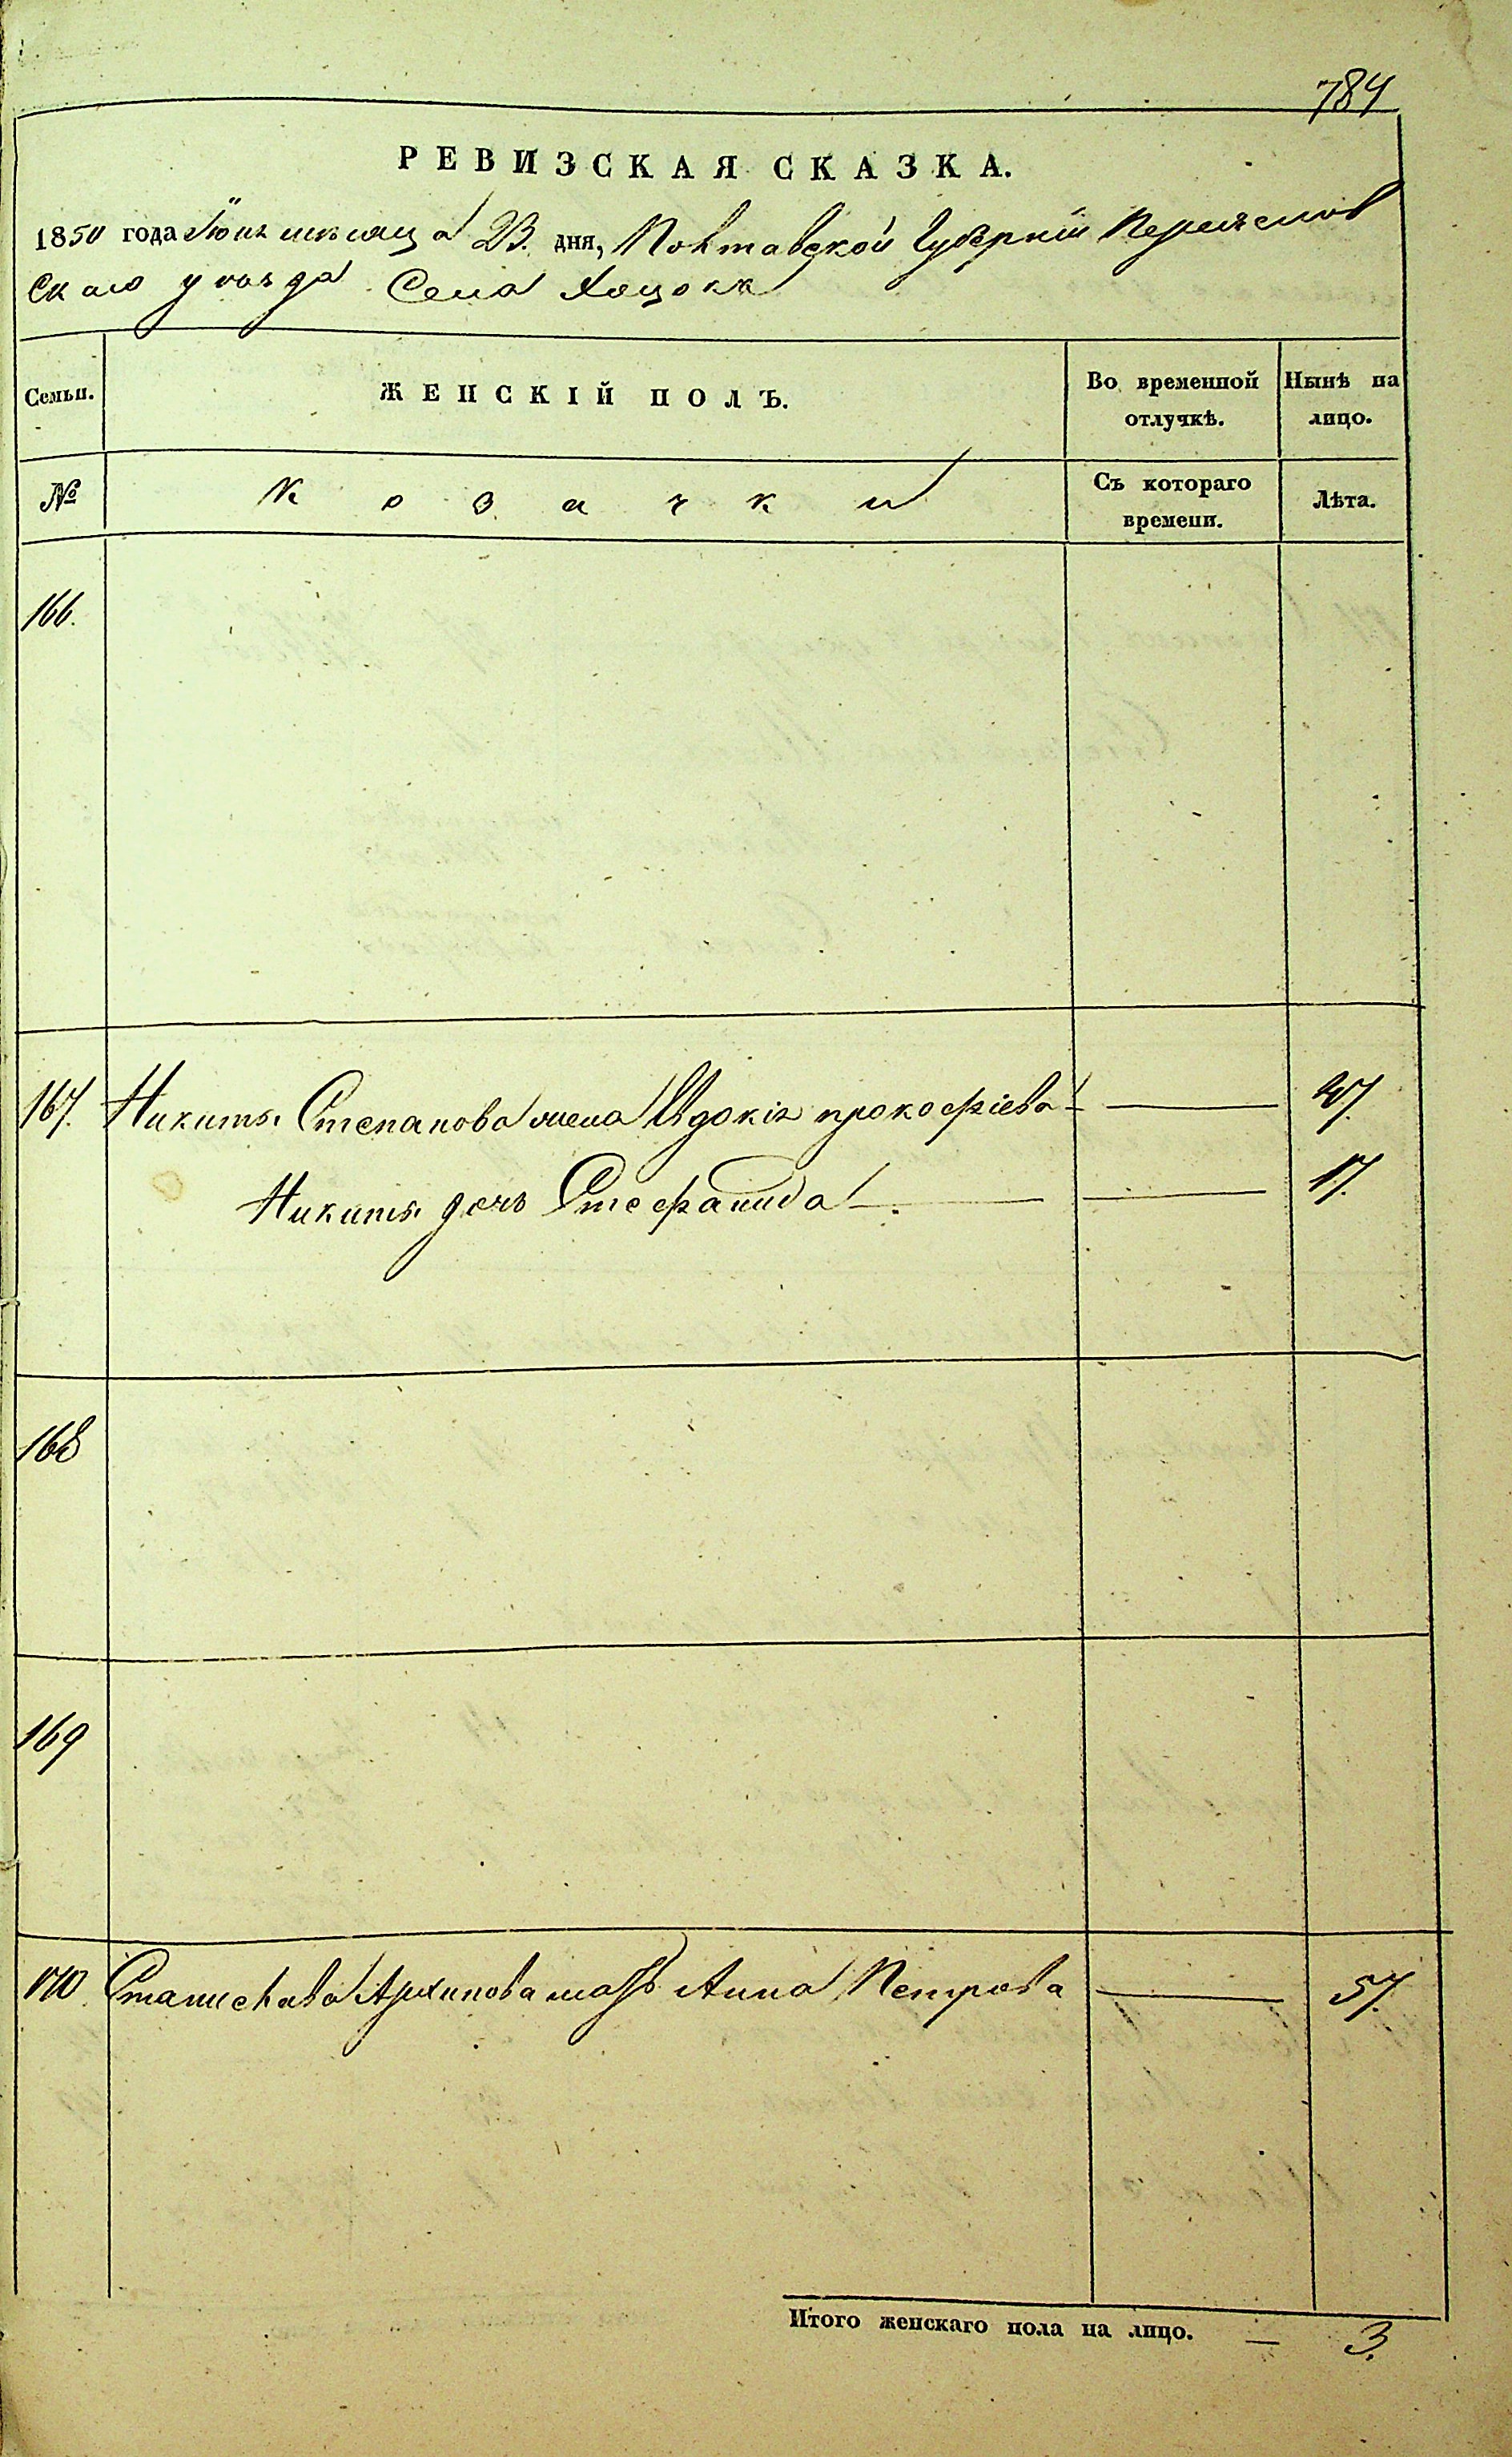 784
РЕВИЗСКАЯ СКАЗКА.
1850 года Іюня мѣсяца 23. дня, Полтавской Губерніи Переяслов
скаго уѣзда Села Хоцокъ
Семьи. ЖЕНСКІЙ ПОЛЪ. Во временной отлучкѣ. Нынѣ на лицо.
№ Козачки Съ котораго времени. Лѣта.
166.
167. Никиты Степанова жена Евдокія прокофіева — 47.
Никиты дочь Стефанида — — 17.
168
169
170. Станислава Архипова мать Анна Петрова — 57.
Итого женскаго пола на лицо. — 3.